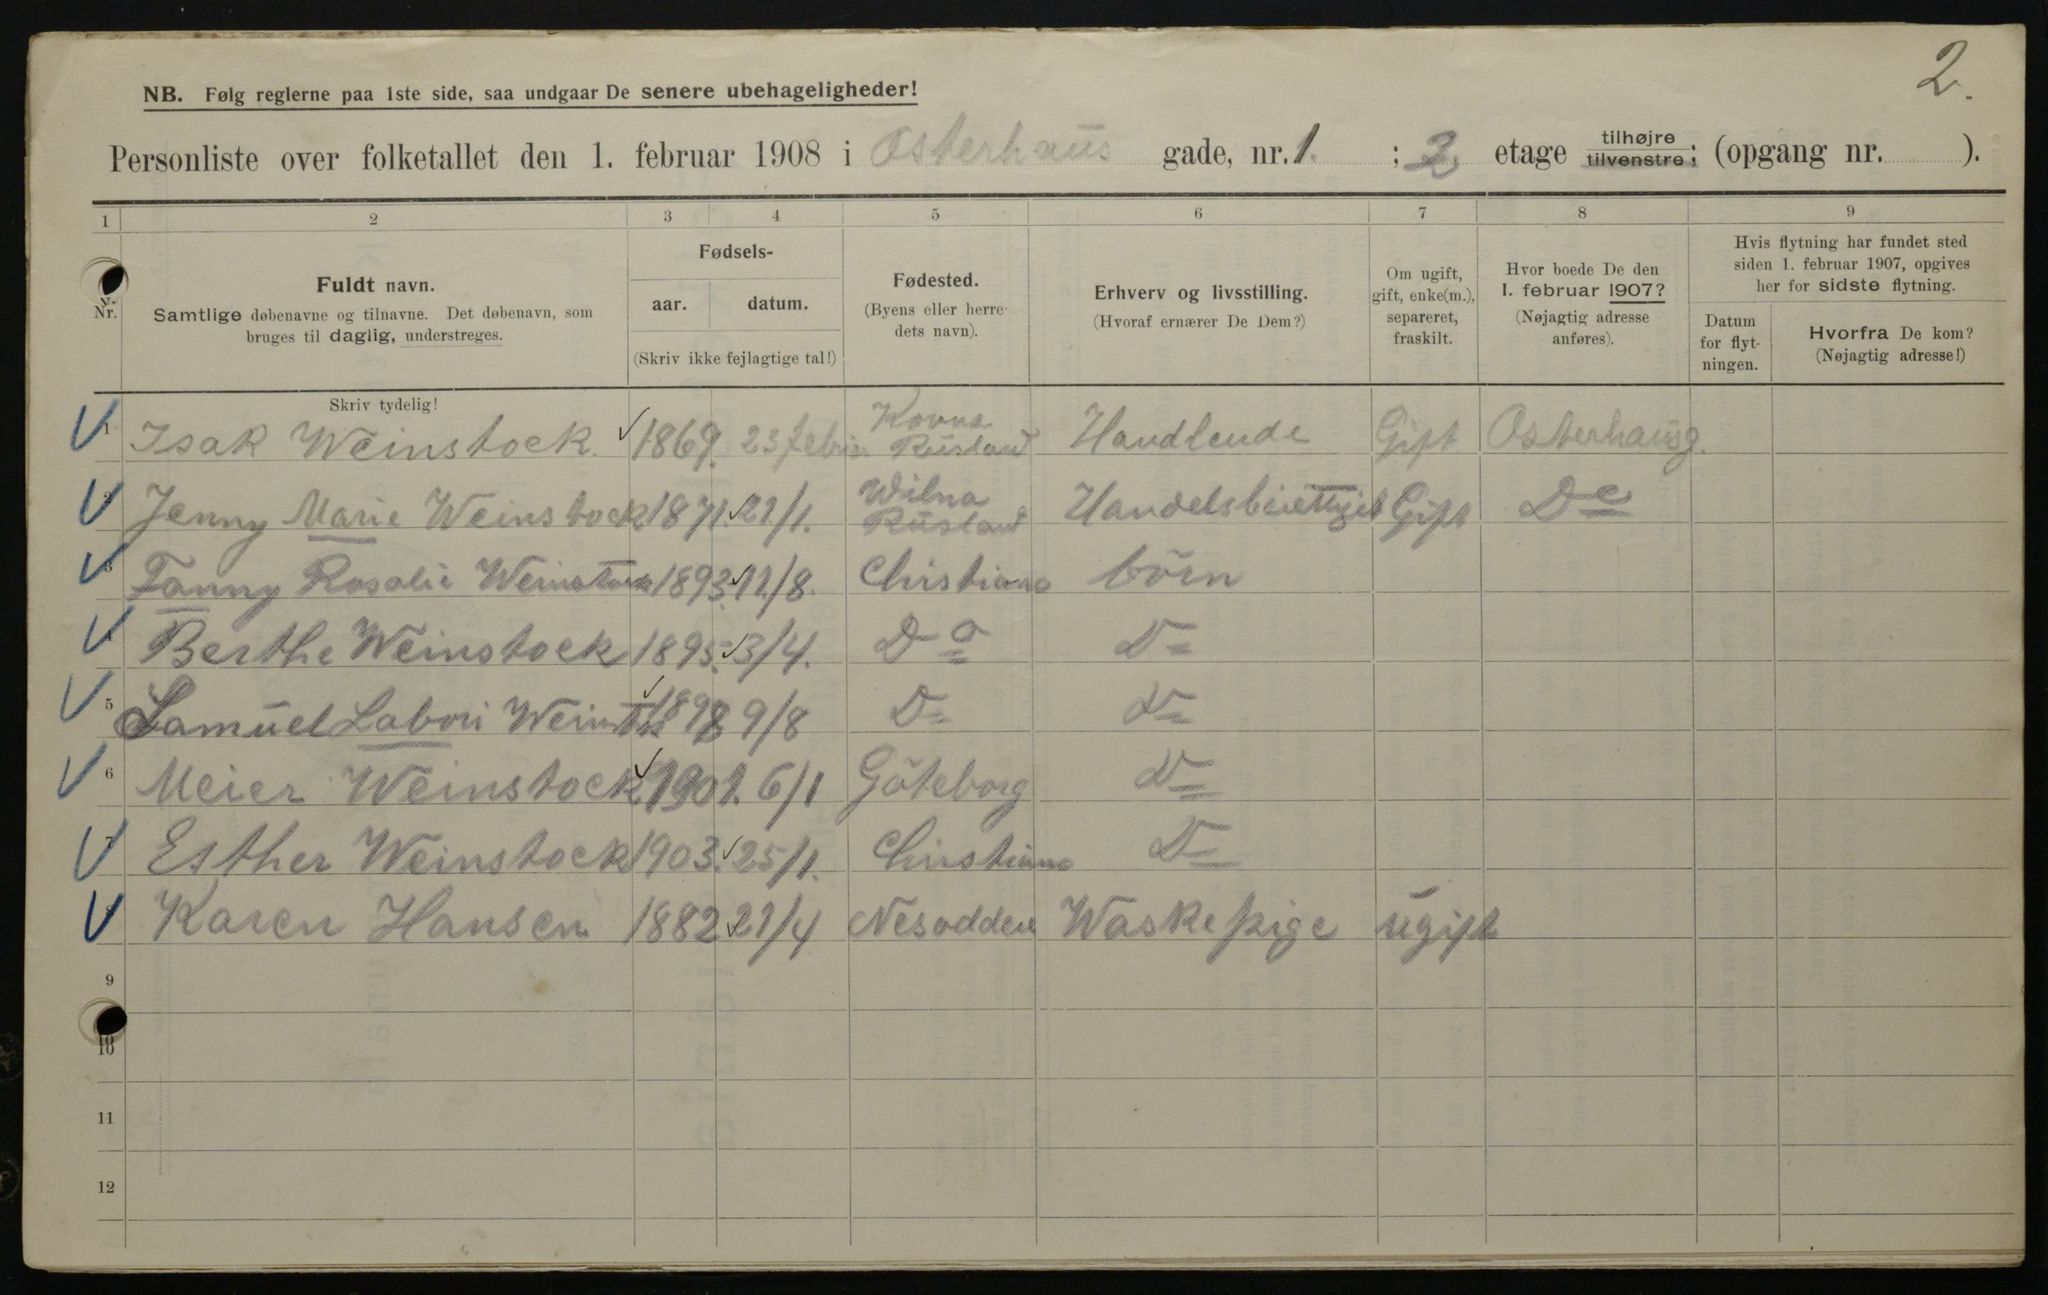 2.
NB. Følg reglerne paa 1ste side, saa undgaar De senere ubehageligheder!
Personliste over folketallet den 1. februar 1908 i Osterhaus gade, nr. 1. ; 2. etage tilhøjre tilvenstre; (opgang nr. ).
1 2 3 4 5 6 7 8 9
Nr.
Fuldt navn.
Samtlige døbenavne og tilnavne. Det døbenavn, som
bruges til daglig, understreges.
Skriv tydelig!
Fødsels-
aar. datum.
(Skriv ikke fejlagtige tal!)
Fødested.
(Byens eller herre-
dets navn).
Erhverv og livsstilling.
(Hvoraf ernærer De Dem?)
Om ugift,
gift, enke(m.),
separeret,
fraskilt.
Hvor boede De den
1. februar 1907?
(Nøjagtig adresse
anføres).
Hvis flytning har fundet sted
siden 1. februar 1907, opgives
her for sidste flytning.
Datum
for flyt-
ningen.
Hvorfra De kom?
(Nøjagtig adresse!)
1 Isak Weinstock 1869. 23 febru Kovna Rusland Handlende Gift Osterhausg.
2 Jenny Marie Weinstock 1871. 21/1. Wilna Rusland Gift Do
3 Fanny Rosalie Weinstock 1893. 11/8. Christiana börn
4 Berthe Weinstock 1895. 3/4. Do D
5 Samuel Labori Weinstock 1898 9/8 D D
6 Meier Weinstock 1901. 6/1 Göteborg D
7 Esther Weinstock 1903. 25/1. Christiana D
8 Karen Hansen 1882 21/4 Nesodden Waskepige ugift
9
10
11
12